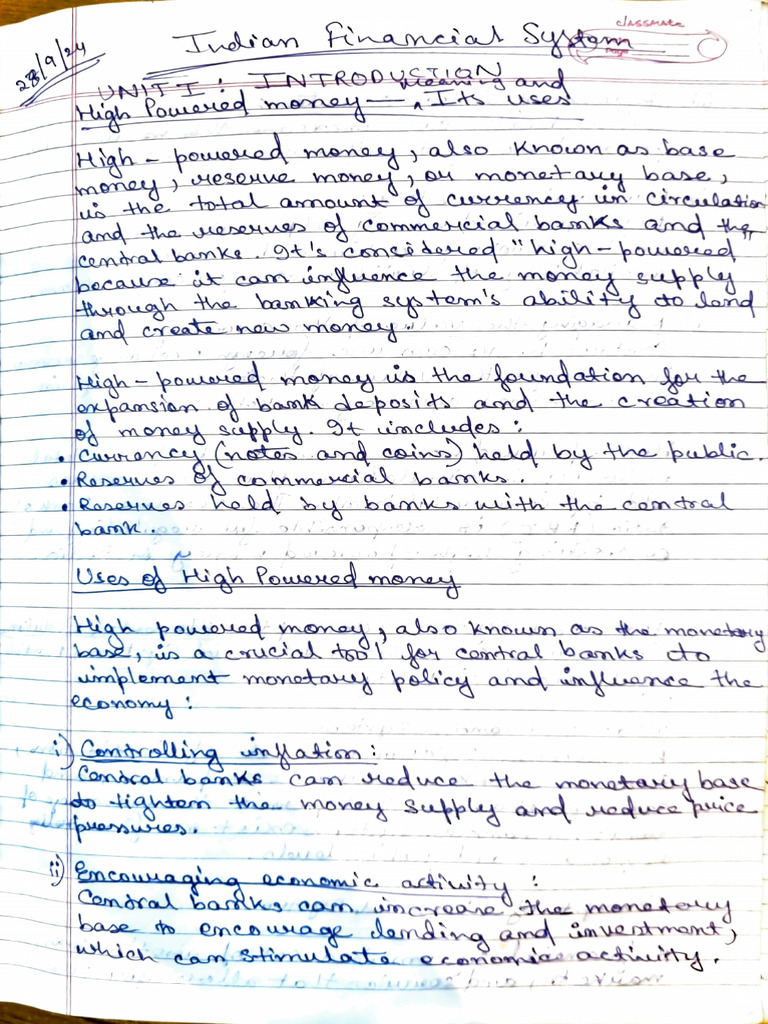 classmate
Page
28/9/24
Indian Financial System
UNIT I : INTRODUCTION
High Powered money — meaning and Its uses
High - powered money, also known as base
money, reserve money, or monetary base,
is the total amount of currency in circulation
and the reserves of commercial banks and the
central banks. It's considered "high-powered
because it can influence the money supply
through the banking system's ability to lend
and create new money.
High - powered money is the foundation for the
expansion of bank deposits and the creation
of money supply. It includes :
• Currency (notes and coins) held by the public.
• Reserves of commercial banks.
• Reserves held by banks with the central
bank.
Uses of High Powered money
High powered money, also known as the monetary
base, is a crucial tool for central banks to
implement monetary policy and influence the
economy :
i) Controlling inflation :
Central banks can reduce the monetary base
to tighten the money supply and reduce price
pressures.
ii) Encouraging economic activity :
Central banks can increase the monetary
base to encourage lending and investment,
which can stimulate economic activity.